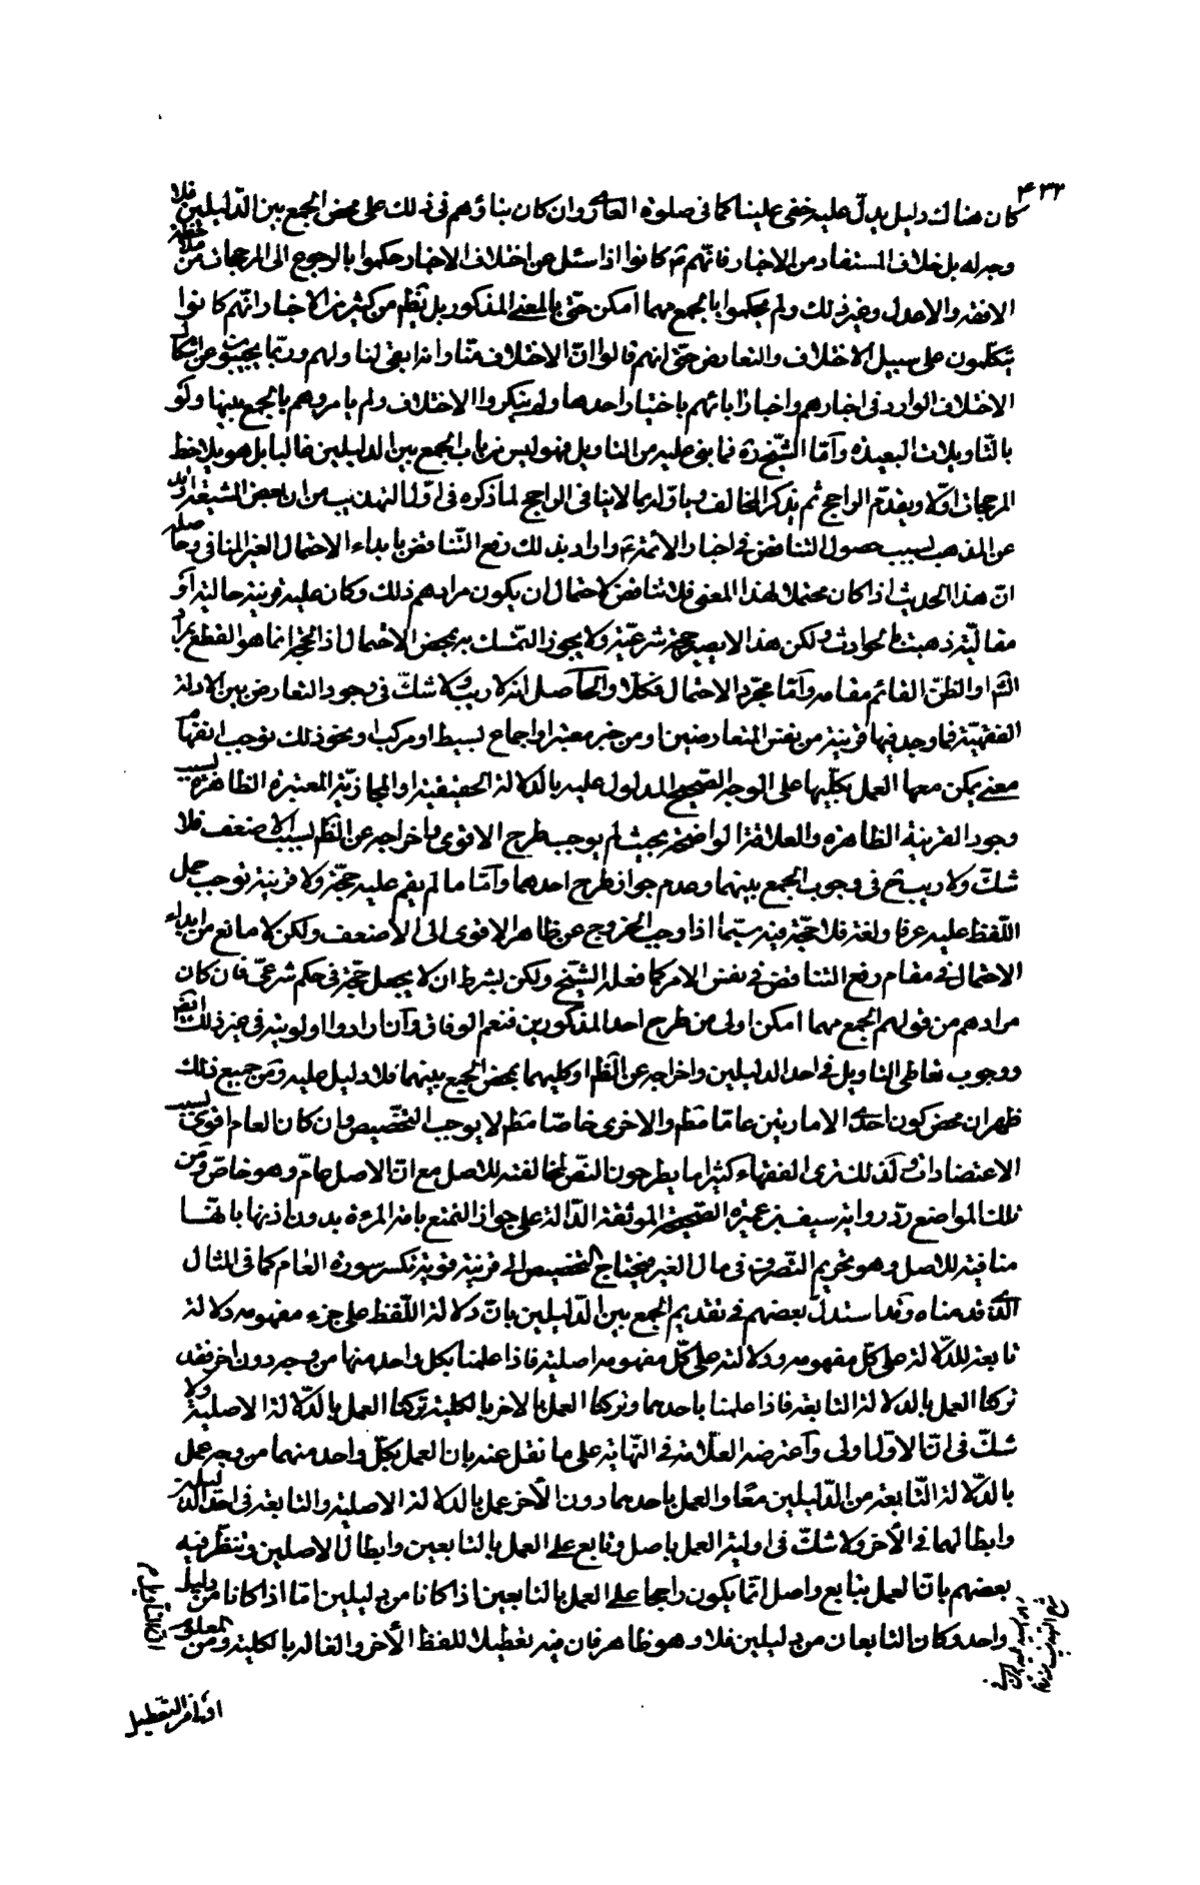 ۴۳۳
كان هناك دليل يدلّ عليه خفى علينا كما فى صلوة العارى وان كان بناؤهم فى ذلك على محض الجمع بين الدّليلين فلا
وجه له بل خلاف المستفاد من الاخبار فانّهم ع كانوا اذا سئل عن اختلاف الاخبار حكموا بالرجوع الى المرجحات من ملاحظة
الافقه والاعدل وغير ذلك ولم يحكموا بالجمع مهما امكن حتّى بالمعنى المذكور بل يظهر من كثير من الاخبار انّهم كانوا
يتكلّمون على سبيل الاختلاف والتعارض حتّى انهم قالوا انّ الاختلاف منّا وانه ابقى لنا ولهم وربّما يجيبون عن اشكال
الاختلاف الوارد فى اخبارهم واخبار ابائهم باختيار احدها ولم ينكروا الاختلاف ولم يامروهم بالجمع بينها ولو
بالتّاويلات البعيدة وامّا الشّيخ ره فما بنى عليه من التاويل فهو ليس من باب الجمع بين الدليلين غالبا بل هو يلاحظ
المرجحات اوّلا ويقدّم الراجح ثم يذكر المخالف وياوّله بما لا ينافى الراجح لما ذكره فى اوّل التهذيب من ان بعض الشيعة ارتد
عن المذهب لسبب حصول التناقض فى اخبار الائمة ع واراد بذلك رفع التّناقض بابداء الاحتمال الغير المنافى وحاصله
انّ هذا الحديث اذا كان محتملا لهذا المعنى فلا تناقض لاحتمال ان يكون مرادهم ذلك وكان عليه قرينة حالية او
مقاليّة ذهبت بالحوادث ولكن هذا لا يصير حجة شرعيّة ولا يجوز التمسّك به بمحض الاحتمال اذ الحجّة انما هو القطع بمراد
الشّارع او الظنّ القائم مقامه وامّا مجرّد الاحتمال فكلّا والحاصل انه لا ريب ولا شكّ فى وجود التعارض بين الادلة
الفقهيّة فما وجد فيها قرينة من نفس المتعارضين او من خبر معتبر او اجماع بسيط او مركب او نحو ذلك توجب انفهام
معنى يمكن معها العمل بكلّيها على الوجه الصّحيح المدلول عليه بالدلالة الحقيقية او المجازيّة المعتبرة الظاهرة بسبب
وجود القرينة الظاهرة والعلاقة الواضحة بحيث لم يوجب طرح الاقوى باخراجه عن الظّاهر بسبب الاضعف فلا
شكّ ولا ريب ح فى وجوب الجمع بينهما وعدم جواز طرح احدهما وامّا ما لم يقم عليه حجّة ولا قرينة توجب حمل
اللّفظ عليه عرفا ولغة فلا حجّة فيه سيّما اذا وجب الخروج عن ظاهر الاقوى الى الاضعف ولكن لا مانع من ابداء
الاحتمال فى مقام رفع التناقض فى نفس الامر كما فعله الشّيخ ولكن بشرط ان لا يجعل حجّة فى حكم شرعىّ فان كان
مرادهم من قولهم الجمع مهما امكن اولى من طرح احد المذكورين فنعم الوفاق وان ارادوا اولويته فى غير ذلك ايضا
ووجوب تعاطى التاويل فى احد الدليلين واخراجه عن الظّاهر او كليهما بمحض الجمع بينهما فلا دليل عليه ومن جميع ذلك
ظهر ان محض كون احدى الامارتين عامّا مط والاخرى خاصّا مط لا يوجب التخصيص وان كان العام اقوى بسبب
الاعتضادات ولذلك ترى الفقهاء كثيرا ما يطرحون النصّ لمخالفته للاصل مع انّ الاصل عامّ وهو خاصّ ومن
تلك المواضع ردّ رواية سيف بن عميرة الصّحيحة الموثقة الدّالة على جواز التمتع بامة المرءة بدون اذنها بانّها
منافية للاصل وهو تحريم التصرف فى مال الغير فيحتاج التخصيص الى قرينة قوية تكسر سورة العام كما فى المثال
الّذى قدمناه وقد استدلّ بعضهم فى تقديم الجمع بين الدّليلين بانّ دلالة اللّفظ على جزء مفهومه دلالة
تابعة للدّلالة على كلّ مفهومه ودلالته على كلّ مفهومه اصلية فاذا علمنا بكل واحد منها من وجه دون اخر فقد
تركنا العمل بالدلالة التابعة فاذا علمنا باحدهما وتركنا العمل بالاخر بالكلية تركنا العمل بالدّلالة الاصلية ولا
شكّ فى انّ الاوّل اولى واعترضه العلّامة فى النّهاية على ما نقل عنه بان العمل بكلّ واحد منهما من وجه عمل
بالدّلالة التّابعة من الدّليلين معًا والعمل باحدهما دون الأخر عمل بالدلالة الاصلية والتابعة فى احد الدليلين
وابطالهما فى الأخر ولا شكّ فى اولية العمل باصل وتابع على العمل بالتابعين وابطال الاصلين وتنظّر فيه
بعضهم بانّ العمل بتابع واصل انّما يكون راجحا على العمل بالتابعين اذا كانا من دليلين امّا اذا كانا من دليل
واحد وكان التابعان من دليلين فلا وهو ظاهر فان فيه تعطيلا للفظ الأخر والغاء له بالكلية ومن المعلوم
انّ التاويل
اولى من التعطيل